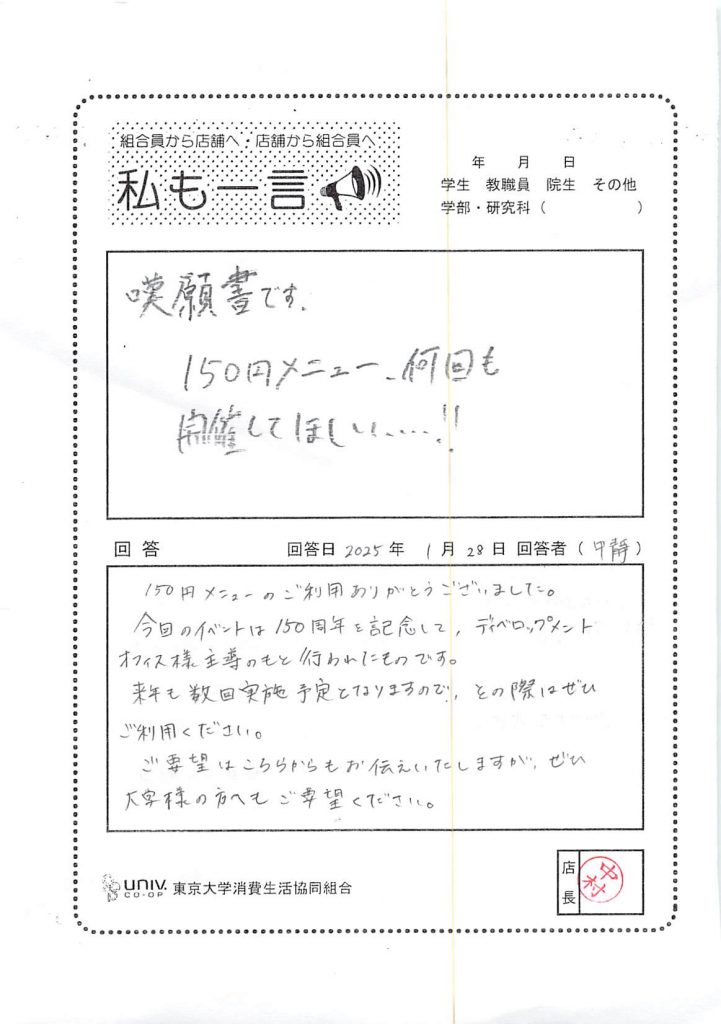 組合員から店舗へ・店舗から組合員へ
私も一言
年 月 日
学生 教職員 院生 その他
学部・研究科（ ）
嘆願書です.
150円メニュー、何回も
開催してほしい……!!
回答 回答日 2025年 1月28日 回答者（中静）
150円メニューのご利用ありがとうございました。
今回のイベントは150周年を記念して、ディベロップメント
オフィス様主導のもと行われたものです。
来年も数回実施予定となりますので、その際はぜひ
ご利用ください。
ご要望はこちらからもお伝えいたしますが、ぜひ
大学様の方へもご要望ください。
UNIV. CO-OP 東京大学消費生活協同組合
店長 中村